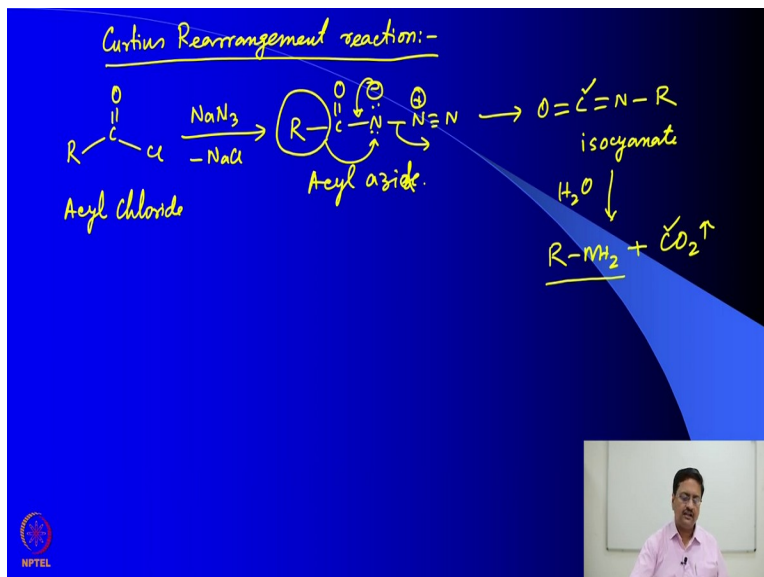 Curtius Rearrangement reaction:-
O O ⊖ ⊕
R-C-Cl NaN3 -NaCl → R-C-N-N≡N → O=C=N-R
Acyl chloride
Acyl azide.
isocyanate
H2O
R-NH2 + CO2↑
NPTEL